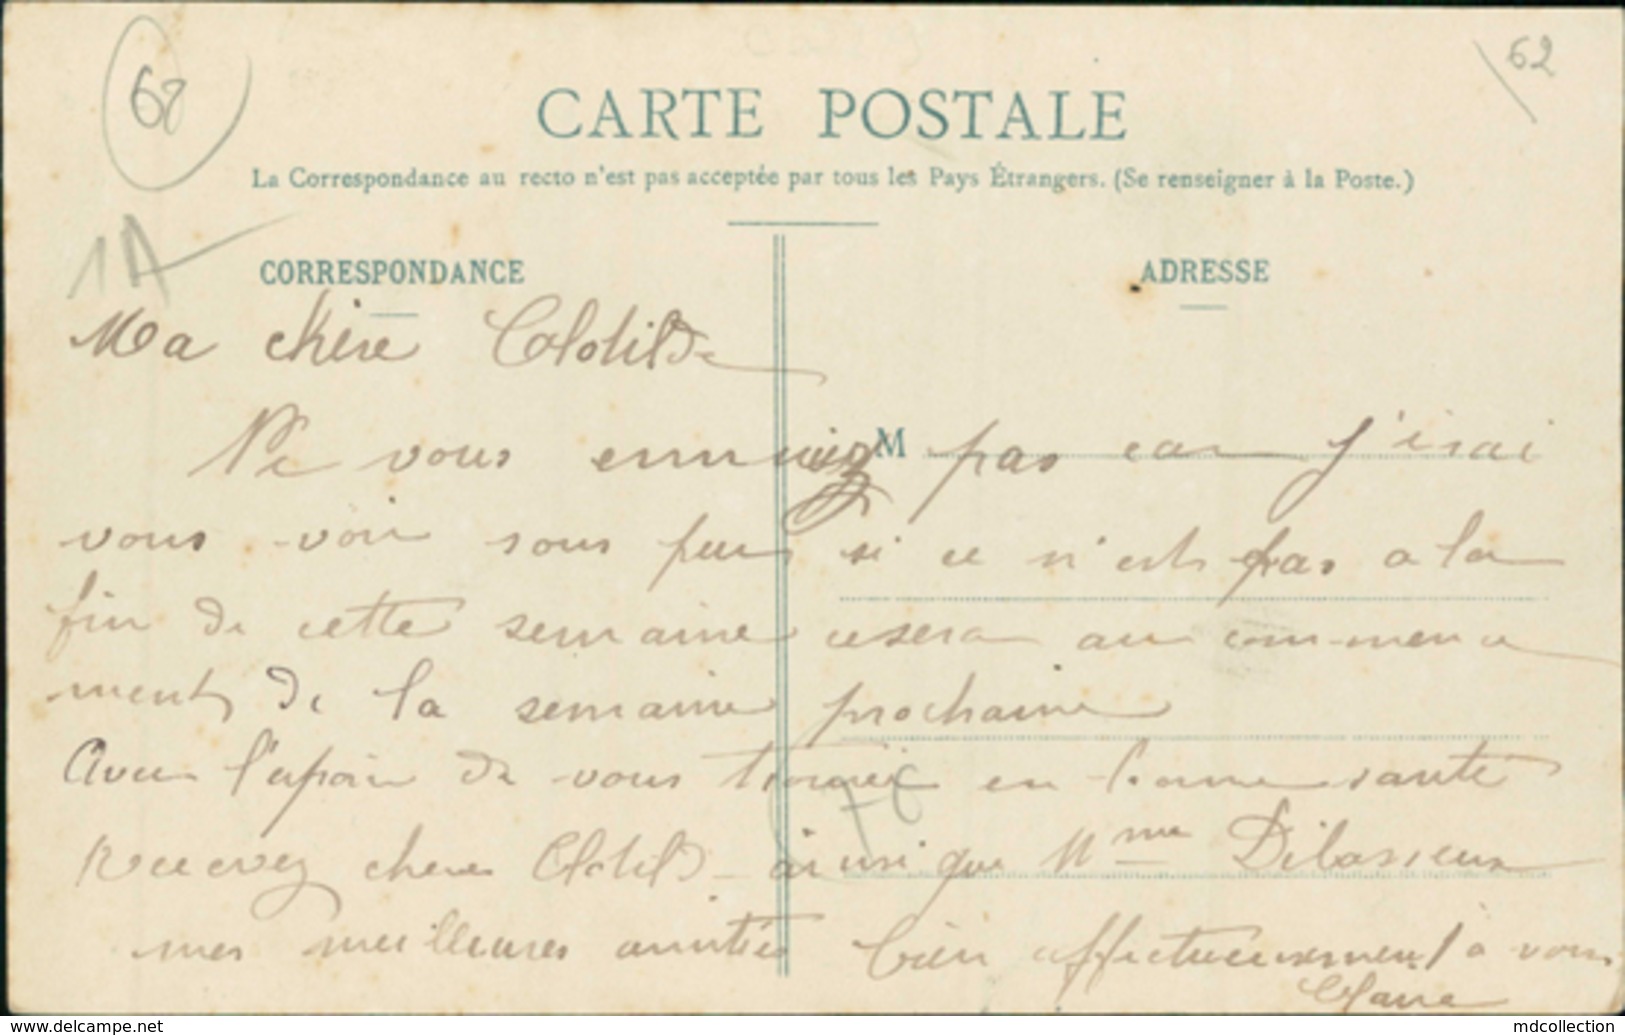 68
62
CARTE POSTALE
La Correspondance au recto n'est pas acceptée par tous les Pays Étrangers. (Se renseigner à la Poste.)
1A
CORRESPONDANCE
ADRESSE
Ma chère Clotilde
M
Ne vous ennuiez pas car j'irai
vous voir sous peu si ce n'est pas a la
fin de cette semaine cesera au commence
ment de la semaine prochaine
Avec l'espoir de vous trouver en bonne santé
Recevez chere Clotilde ainsi que Mme
mes meilleures amitiés bien affectueusement à vous
www.delcampe.net
mdcollection